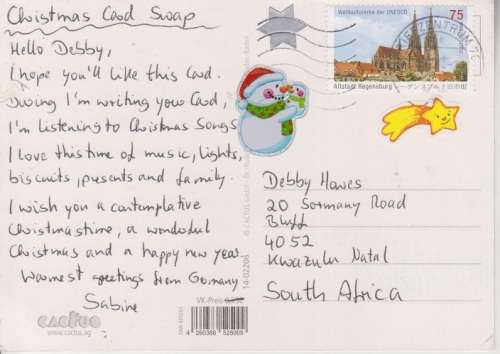 Christmas Card Swap
Hello Debby,
I hope you'll like this Card.
During I'm writing your Card,
I'm listening to Christmas Songs
I love this time of music, lights,
biscuits, presents and family.
I wish you a contemplative
Christmastime, a wonderful
Christmas and a happy new year.
Warmest greetings from Germany
Sabine
CACTUS
www.cactus.ag
VK-Preis
4 260388 528068
14-02208
© CACTUS GmbH
Weltkulturerbe der UNESCO
75
Altstadt Regensburg
BRIEFZENTRUM 76
Debby Hawes
20 Sormany Road
Bluff
4052
Kwazulu Natal
South Africa